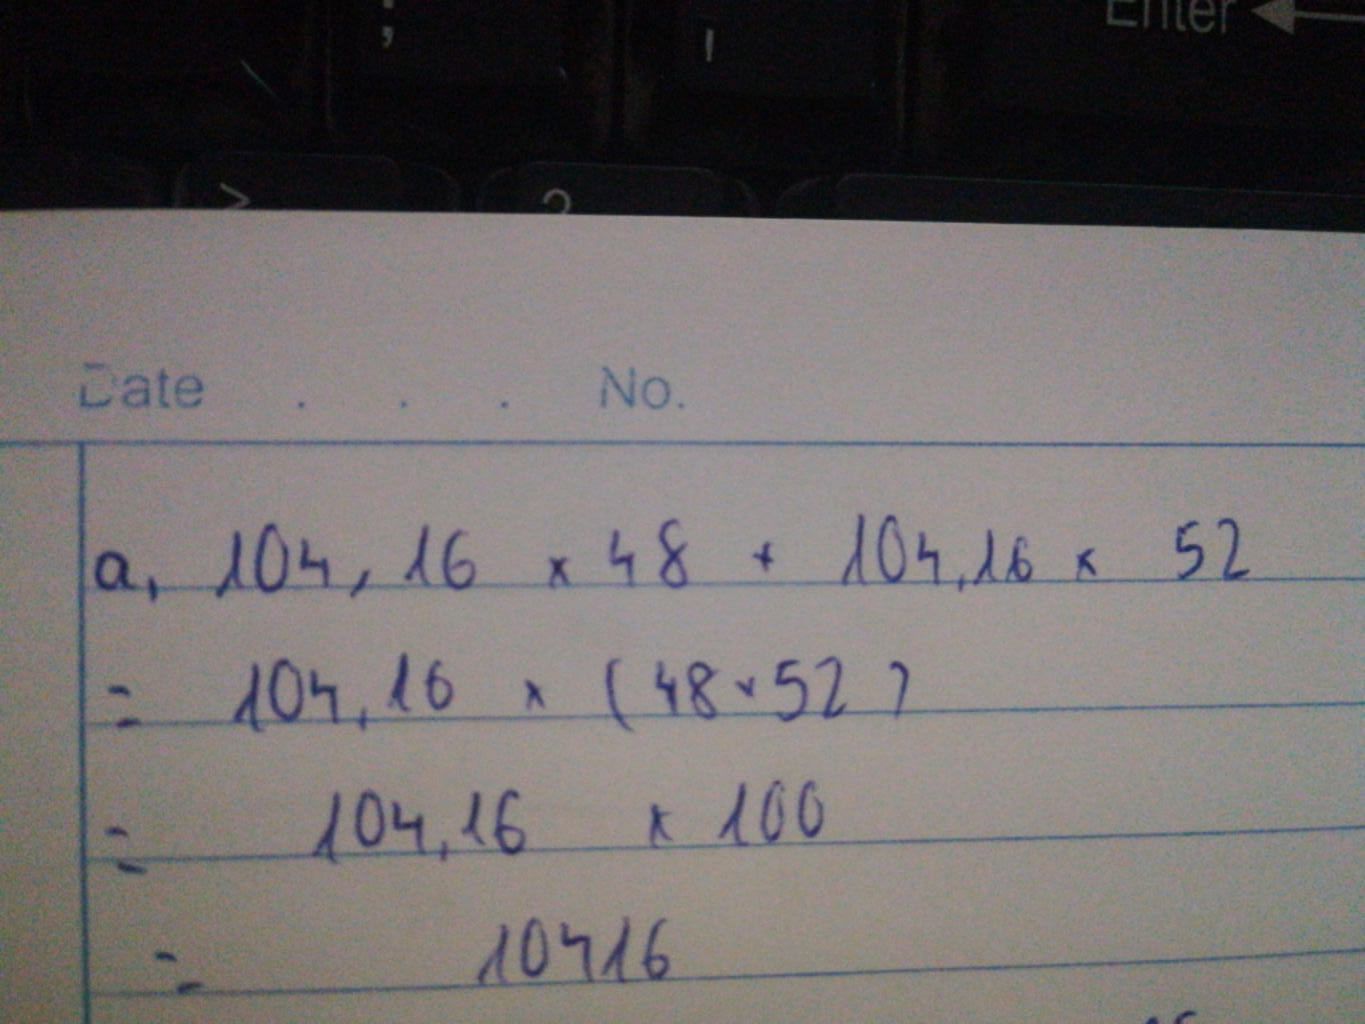 ; ' Enter
> ?
Date . . . No.
a, 104,16 x 48 + 104,16 x 52
= 104,16 x (48+52)
= 104,16 x 100
= 10416